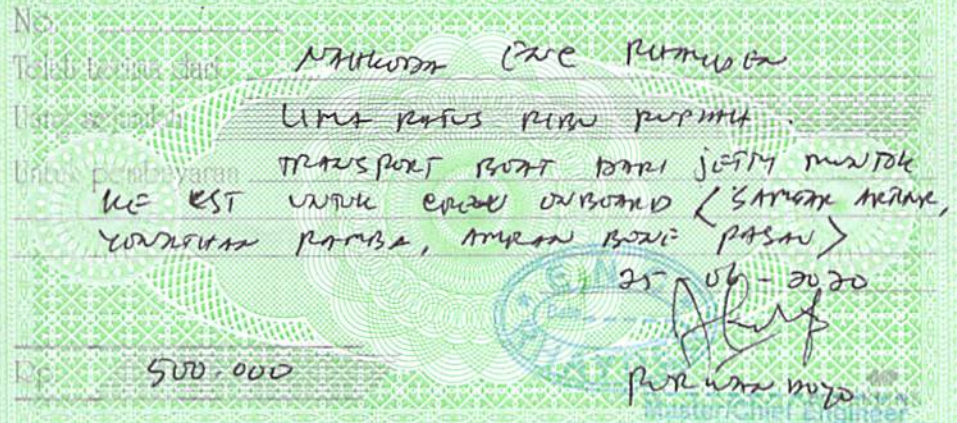 No.
Telah terima dari NAHKODA
Uang sejumlah LIMA RATUS RIBU RUPIAH.
Untuk pembayaran TRANSPORT BOAT DARI JETTY MUNTOK
KE EST UNTUK CREW ONBOARD (SAMGAR AKBAR,
YONATHAN RAMBA, AMRAN BONE PASAU)
25-06-2020
Rp. 500.000
Master/Chief Engineer